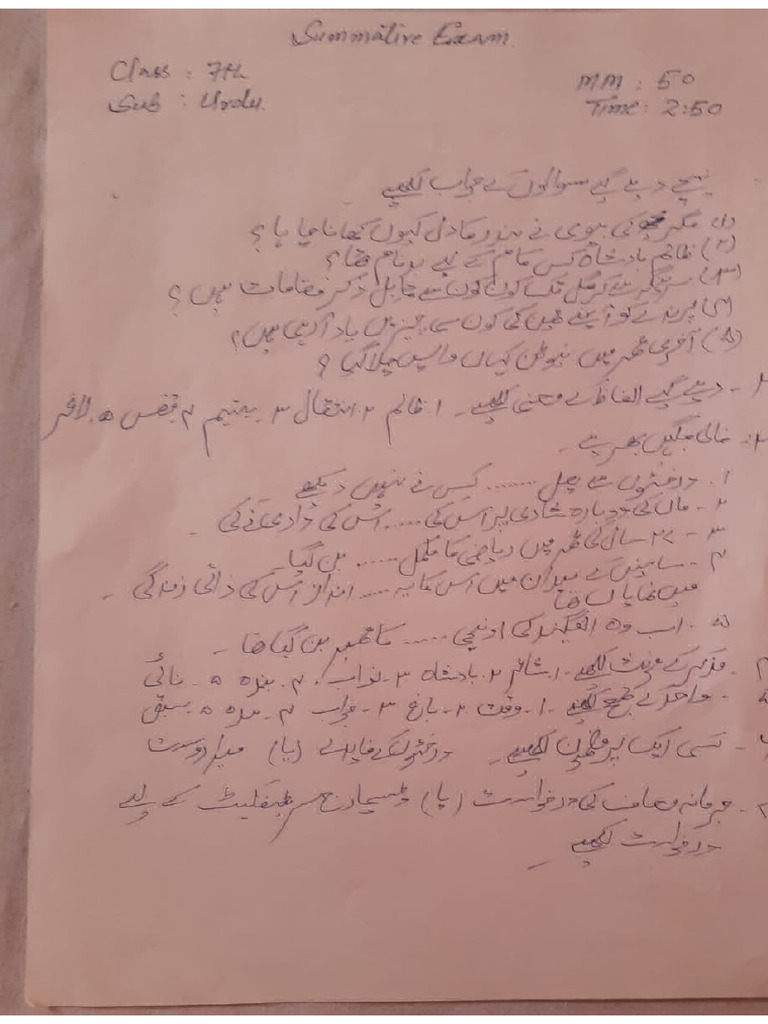 Summative Exam
Class : 7th
M M : 50
Sub : Urdu.
Time : 2:50
نیچے دیے گیے سوالوں کے جواب لکھیے
(۱) مگر مچھ کی بیوی نے بندر کا دل کیوں کھانا چاہا؟
(۲) ظالم بادشاہ کس کام کے لیے بدنام تھا؟
(۳) سرینگر سے کرگل تک کون کون سے قابل ذکر مقامات ہیں؟
(۴) پرندے کو اپنے گھر کی کون سی چیزیں یاد آ رہی ہیں؟
(۵) آخری عمر میں نیوٹن کہاں واپس چلا گیا؟
۲ - دیے گیے الفاظ کے معنی لکھیے - ۱. ظالم ۲. انتقال ۳. یتیم ۴. قفس ۵. لاغر
۳. خالی جگہیں بھریے -
۱. درختوں سے پھل ...... کس نے نہیں دیکھے
۲ - ماں کی دوبارہ شادی پر اس کی ...... اُس کی دادی نے کی -
۳ - ۲۷ سال کی عمر میں ریاضی کا مکمل ...... بن گیا -
۴ - سائنس کے میدان میں اس کا یہ ...... انداز اُس کی ذاتی زندگی
میں نمایاں تھا -
۵ - اب وہ انگلینڈ کی اونچی ...... کا ممبر بن گیا تھا -
۴ - مذکر کے مونث لکھیے - ۱. شاعر ۲. بادشاہ ۳ - نواب ۴. بندہ ۵ - نائی
۵ - واحد کے جمع لکھیے - ۱. وقت ۲ - باغ ۳ - جواب ۴ - مردہ ۵. سبق
۶ - کسی ایک پر مضمون لکھیے - درختوں کے فایدے (یا) میرا دوست
۷ - جرمانہ معاف کی درخواست (یا) ڈسچارج سرٹیفکیٹ کے لیے
درخواست لکھیے -